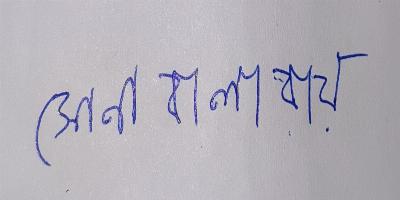 সোনা বালা রায়